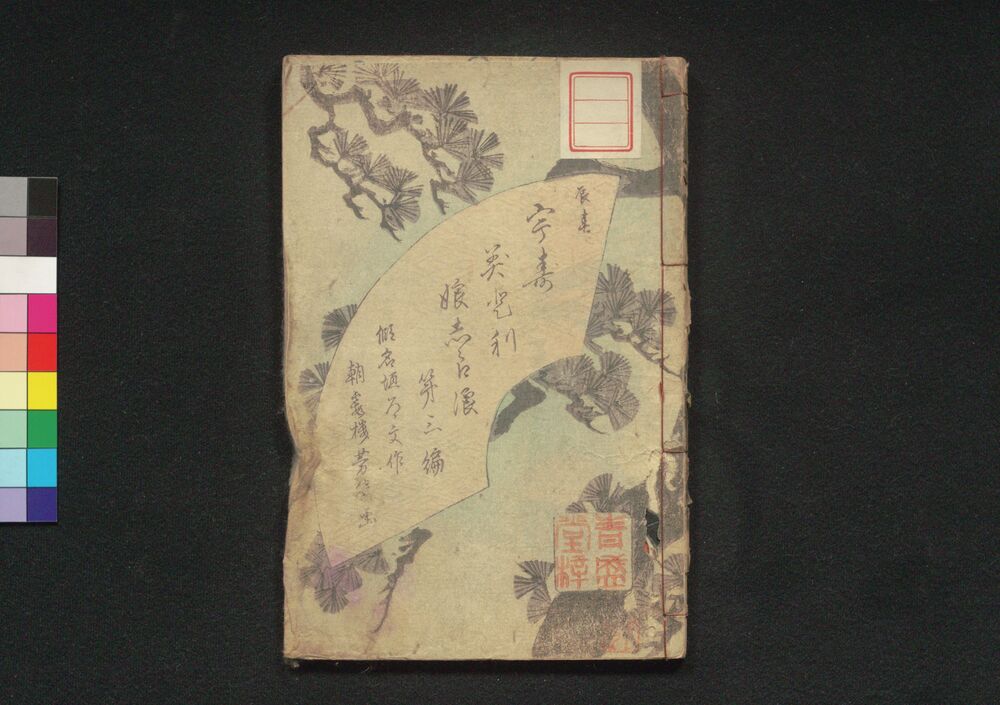 辰春
宇寿
美登利
娘志らが浪
第三編
仮名垣魯文作
朝霞楼芳幾画
青盛
堂梓